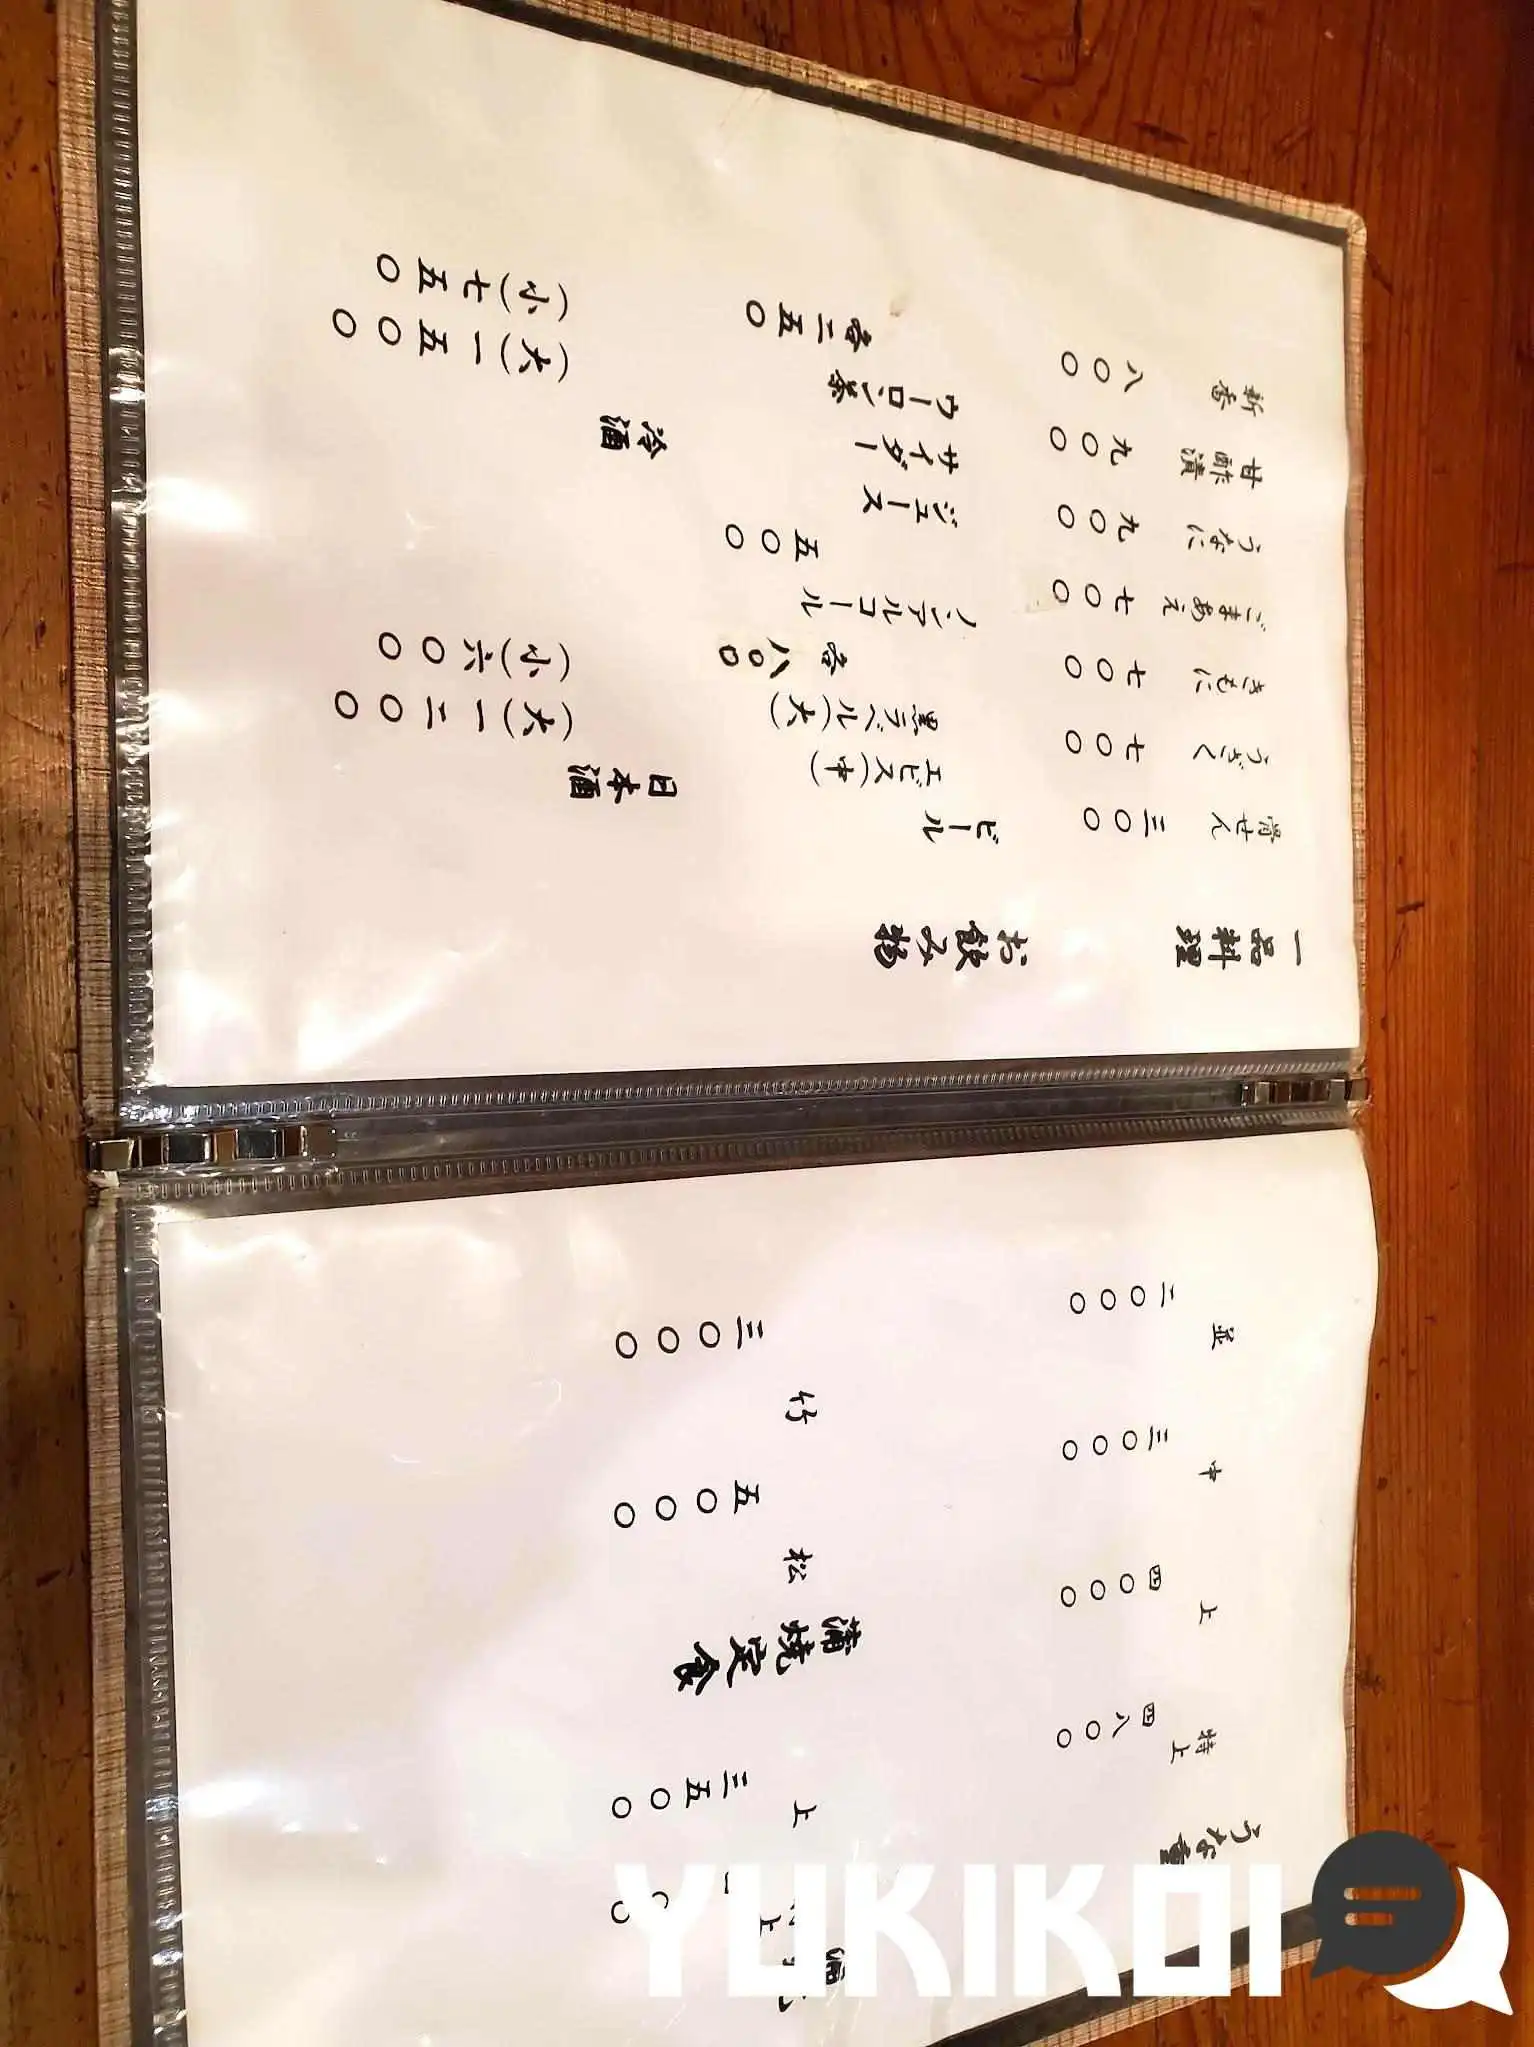 うな重
特上 四八〇〇
上 四〇〇〇
中 三〇〇〇
並 二〇〇〇
上 三五〇〇
蒲焼定食
松 五〇〇〇
竹 三〇〇〇
一品料理
骨せん 三〇〇
うざく 七〇〇
きもに 七〇〇
ごまあえ 七〇〇
うなに 九〇〇
甘酢漬 九〇〇
新香 八〇〇
お飲み物
ビール
エビス(中)
黒ラベル(大)
各八〇〇
ノンアルコール
五〇〇
ジュース
サイダー
ウーロン茶
各二五〇
日本酒
(大)一二〇〇
(小)六〇〇
冷酒
(大)一五〇〇
(小)七五〇
YUKIKOI